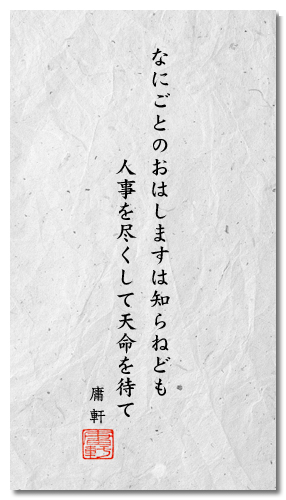 なにごとのおはしますは知らねども
人事を尽くして天命を待て
庸軒
庸軒